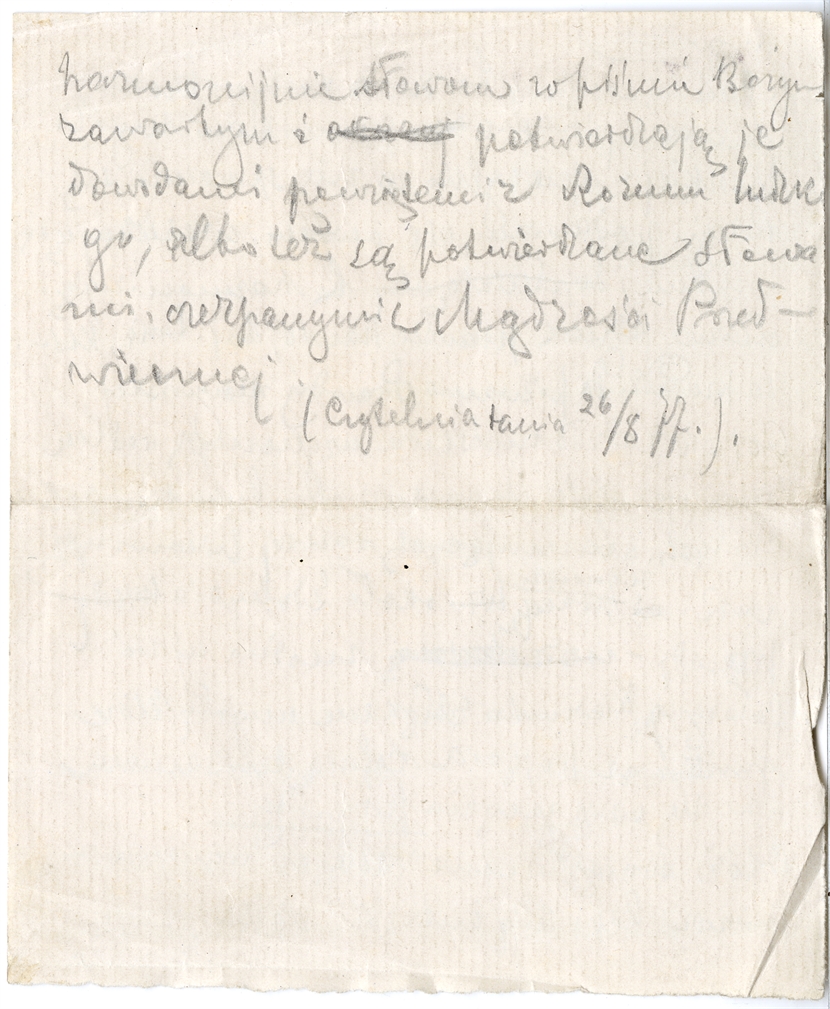 harmonijnie słowom w piśmie Bożym
zawartym i potwierdzają je
dowodami powziętemi z Rozumu ludzk
go, albo też są potwierdzane słowa
mi, czerpanymi z Mądrości Przed-
wiecznej.
(Czytelnia tania 26/8 77.).